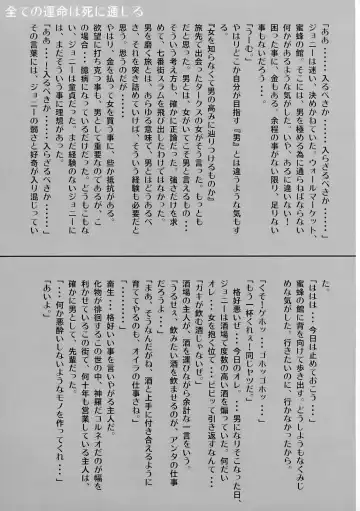 全ての運命は死に通じる
「ああ・・・・入るべきか・・・・入らざるべきか・・・・」
ジョニーは迷い、決めかねていた。ウォールマーケット、
蜜蜂の館。そこには、男を極める為に通らねばならない
何かがあるような気がした。いや、あるに違いない！
困った事に、金もある。余程の事がない限り、足りない
事もないだろう・・・。
「うーむ。」
やはりどこか自分が目指す『男』とは違うような気もす
る。
『女を知らなくて男の高みに辿りつけるものか』
旅先で出会ったタークスの女がそう言った。もっとも
そういう考え方も、確かに正論だった。強さだけを求
めて、七番街スラムを飛び出したわけではなかった。
男を磨く旅とは、あらゆる意味で、男とはどうあるべ
き、それを突き詰めていけば、そういう経験も必要だと
思う。思うのだが・・・・
やはり、金を払って女を買う事に、些か抵抗がある。
欲望に打ち克つ事も、男として重要なのであるが、こ
の場合・・・臆病になっているだけだった。どうもこしな
い、ジョニーは童貞だった。まだ経験のないジョニーに
は、まだそういう事に理想があった。
その言葉には、ジョニーの弱さと好奇が入り混じってい
た。
「ははは・・・今日は止めておこう・・・」
蜜蜂の館に背を向けて歩き出す。どうしようもなくみじ
めな気がした。行きたいのに、行かなかったから。
「くそ！ゲホッ・・・ゴホッゴホッ・・・」
「もう一杯くれぇ！同じヤツだ。」
格好悪いぜ・・・今日のオレ。・・・男になりそこなった日、
ジョニーは酒場で度数の高い酒を煽っていた。何だい
オレ・・・女を抱く位で・・・ビビッて引き返すなんて・・・
「ガキが飲む酒じゃないぜ。」
酒場の主人が、酒を運びながら余計な一言をいう。
「うるせぇ、飲みたい酒を飲ませるのが、アンタの仕事
だろうよ・・・」
「まあ、そうなんだがね、酒と上手に付き合えるように
育ててやるのも、オイラの仕事さね。」
畜生・・・格好いい事を言いやがる主人だ。
化物が徘徊するこの世の中、神羅だコルネオだのが幅を
利かせているこの街で、何十年も営業している主人は、
確かに男として、先輩だった。
「・・・何か悪酔いしないようなモノを作ってくれ・・・」
「あいよ。」